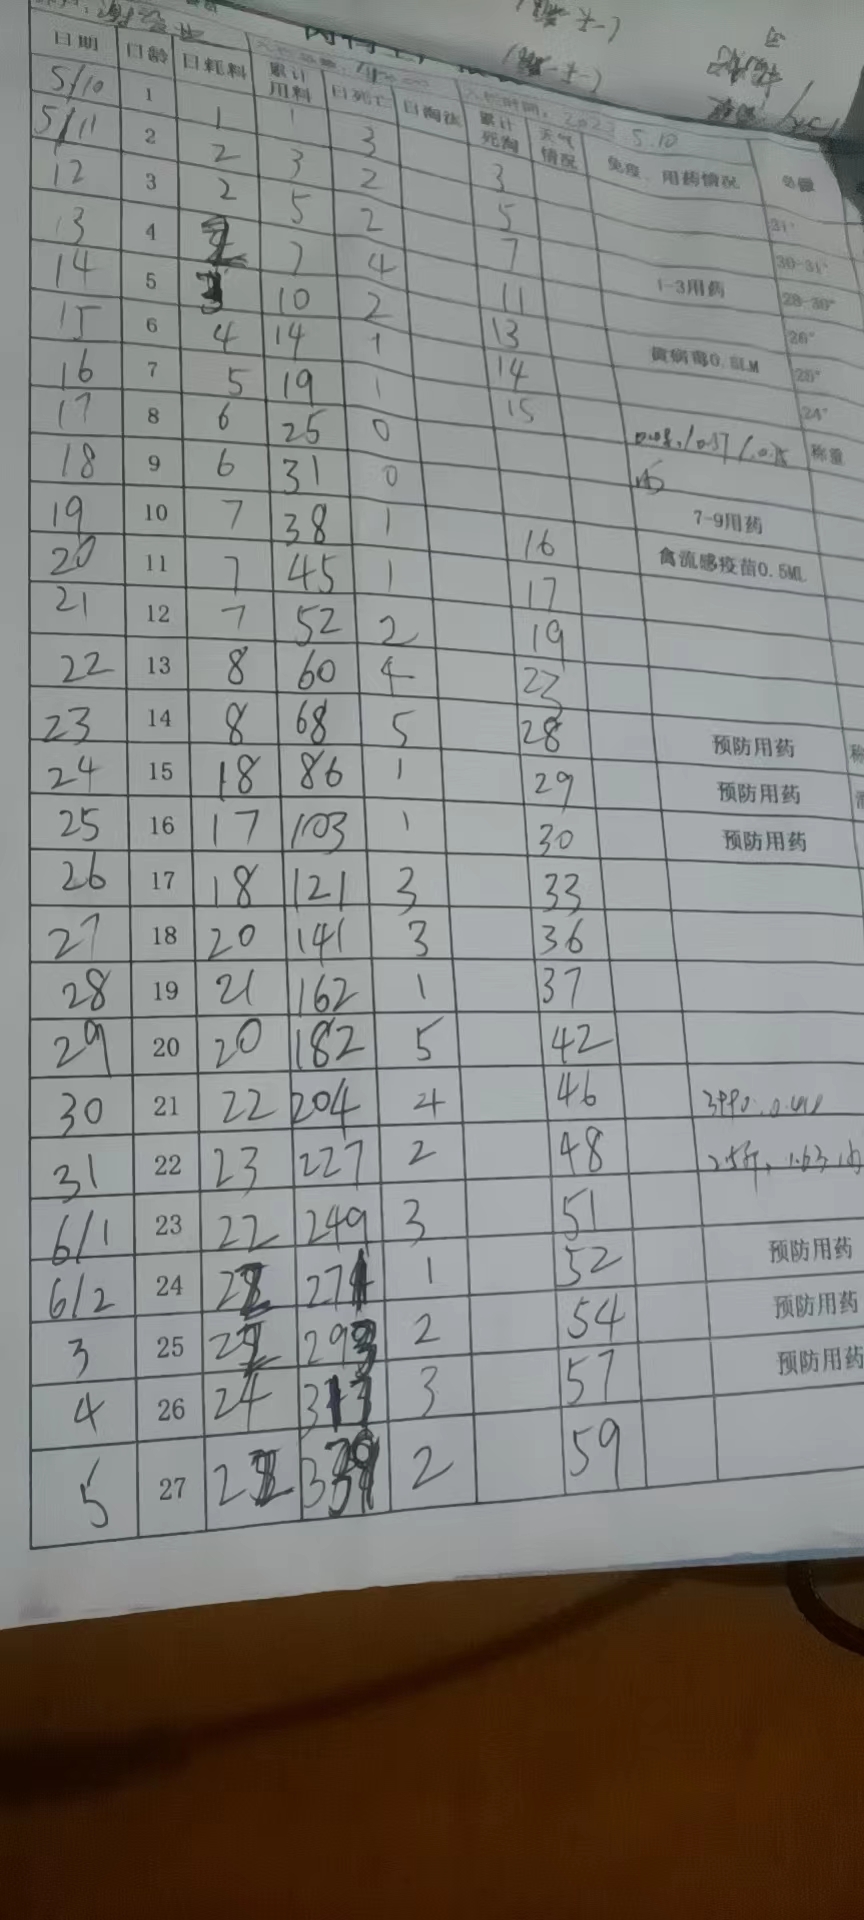 日期 日龄 日耗料 累计用料 日死亡 日淘汰 累计死淘 天气情况 免疫、用药情况
2023 5.10
5/10 1 1 1 3 3
5/11 2 2 3 2 5 31°
12 3 2 5 2 7 30-31°
13 4 2 7 4 11 1-3用药 28-30°
14 5 3 10 2 13 26°
15 6 4 14 1 14 0.5LM 25°
16 7 5 19 1 15 24°
17 8 6 25 0 称量
18 9 6 31 0
19 10 7 38 1 16 7-9用药
20 11 7 45 1 17 禽流感疫苗0.5ML
21 12 7 52 2 19
22 13 8 60 4 23
23 14 8 68 5 28 预防用药
24 15 18 86 1 29 预防用药
25 16 17 103 1 30 预防用药
26 17 18 121 3 33
27 18 20 141 3 36
28 19 21 162 1 37
29 20 20 182 5 42
30 21 22 204 4 46
31 22 23 227 2 48
6/1 23 22 249 3 51
6/2 24 1 52 预防用药
3 25 2 54 预防用药
4 26 24 3 57 预防用药
5 27 2 59